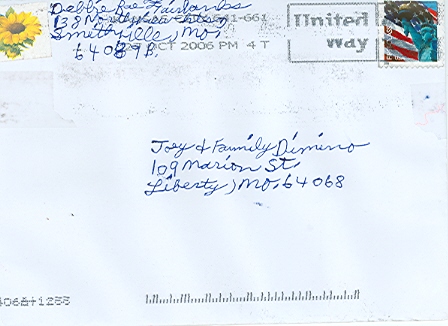 Debbie Rae Fairbanks
Smithville, Mo.
64089
OCT 2006 PM 4 T
United
Way
Joey & Family Dimino
109 Marion St.
Liberty, Mo. 64068